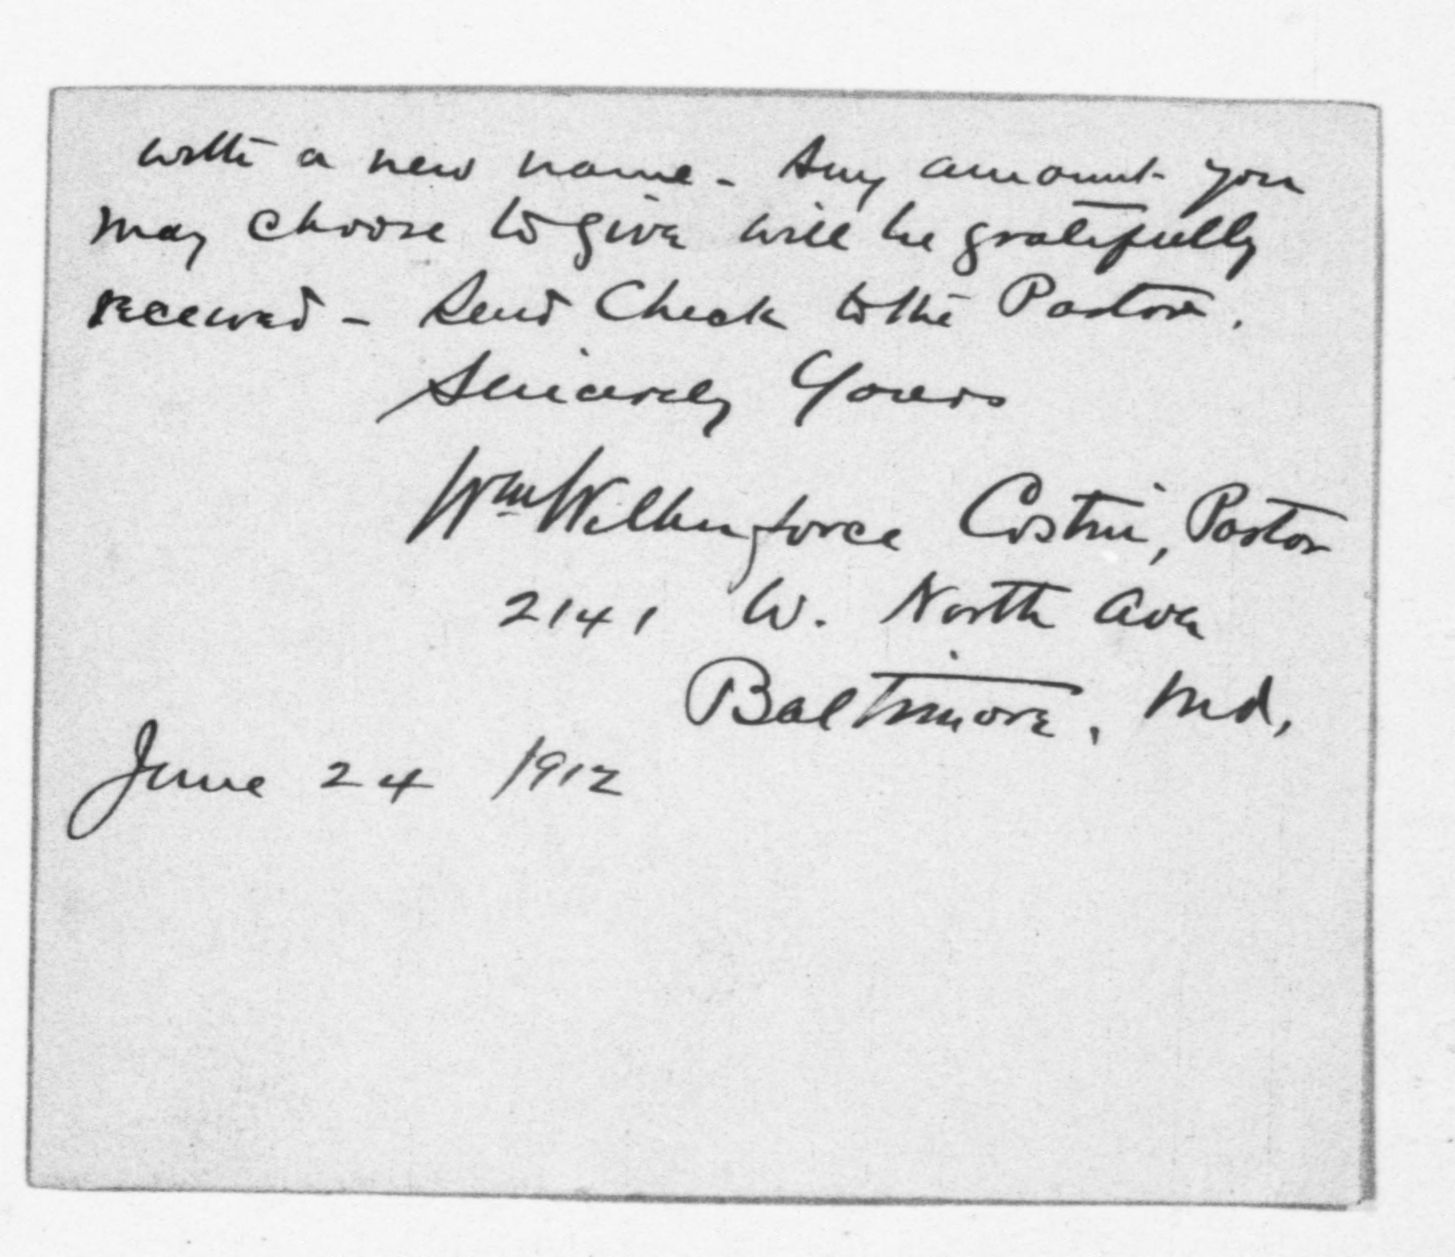 with a new name - Any amount you
may choose to give will be gratefully
received - Send Check to the Pastor.
Sincerely Yours
Wm Wilberforce Costin, Pastor
2141 W. North Ave
Baltimore, Md.
June 24 1912